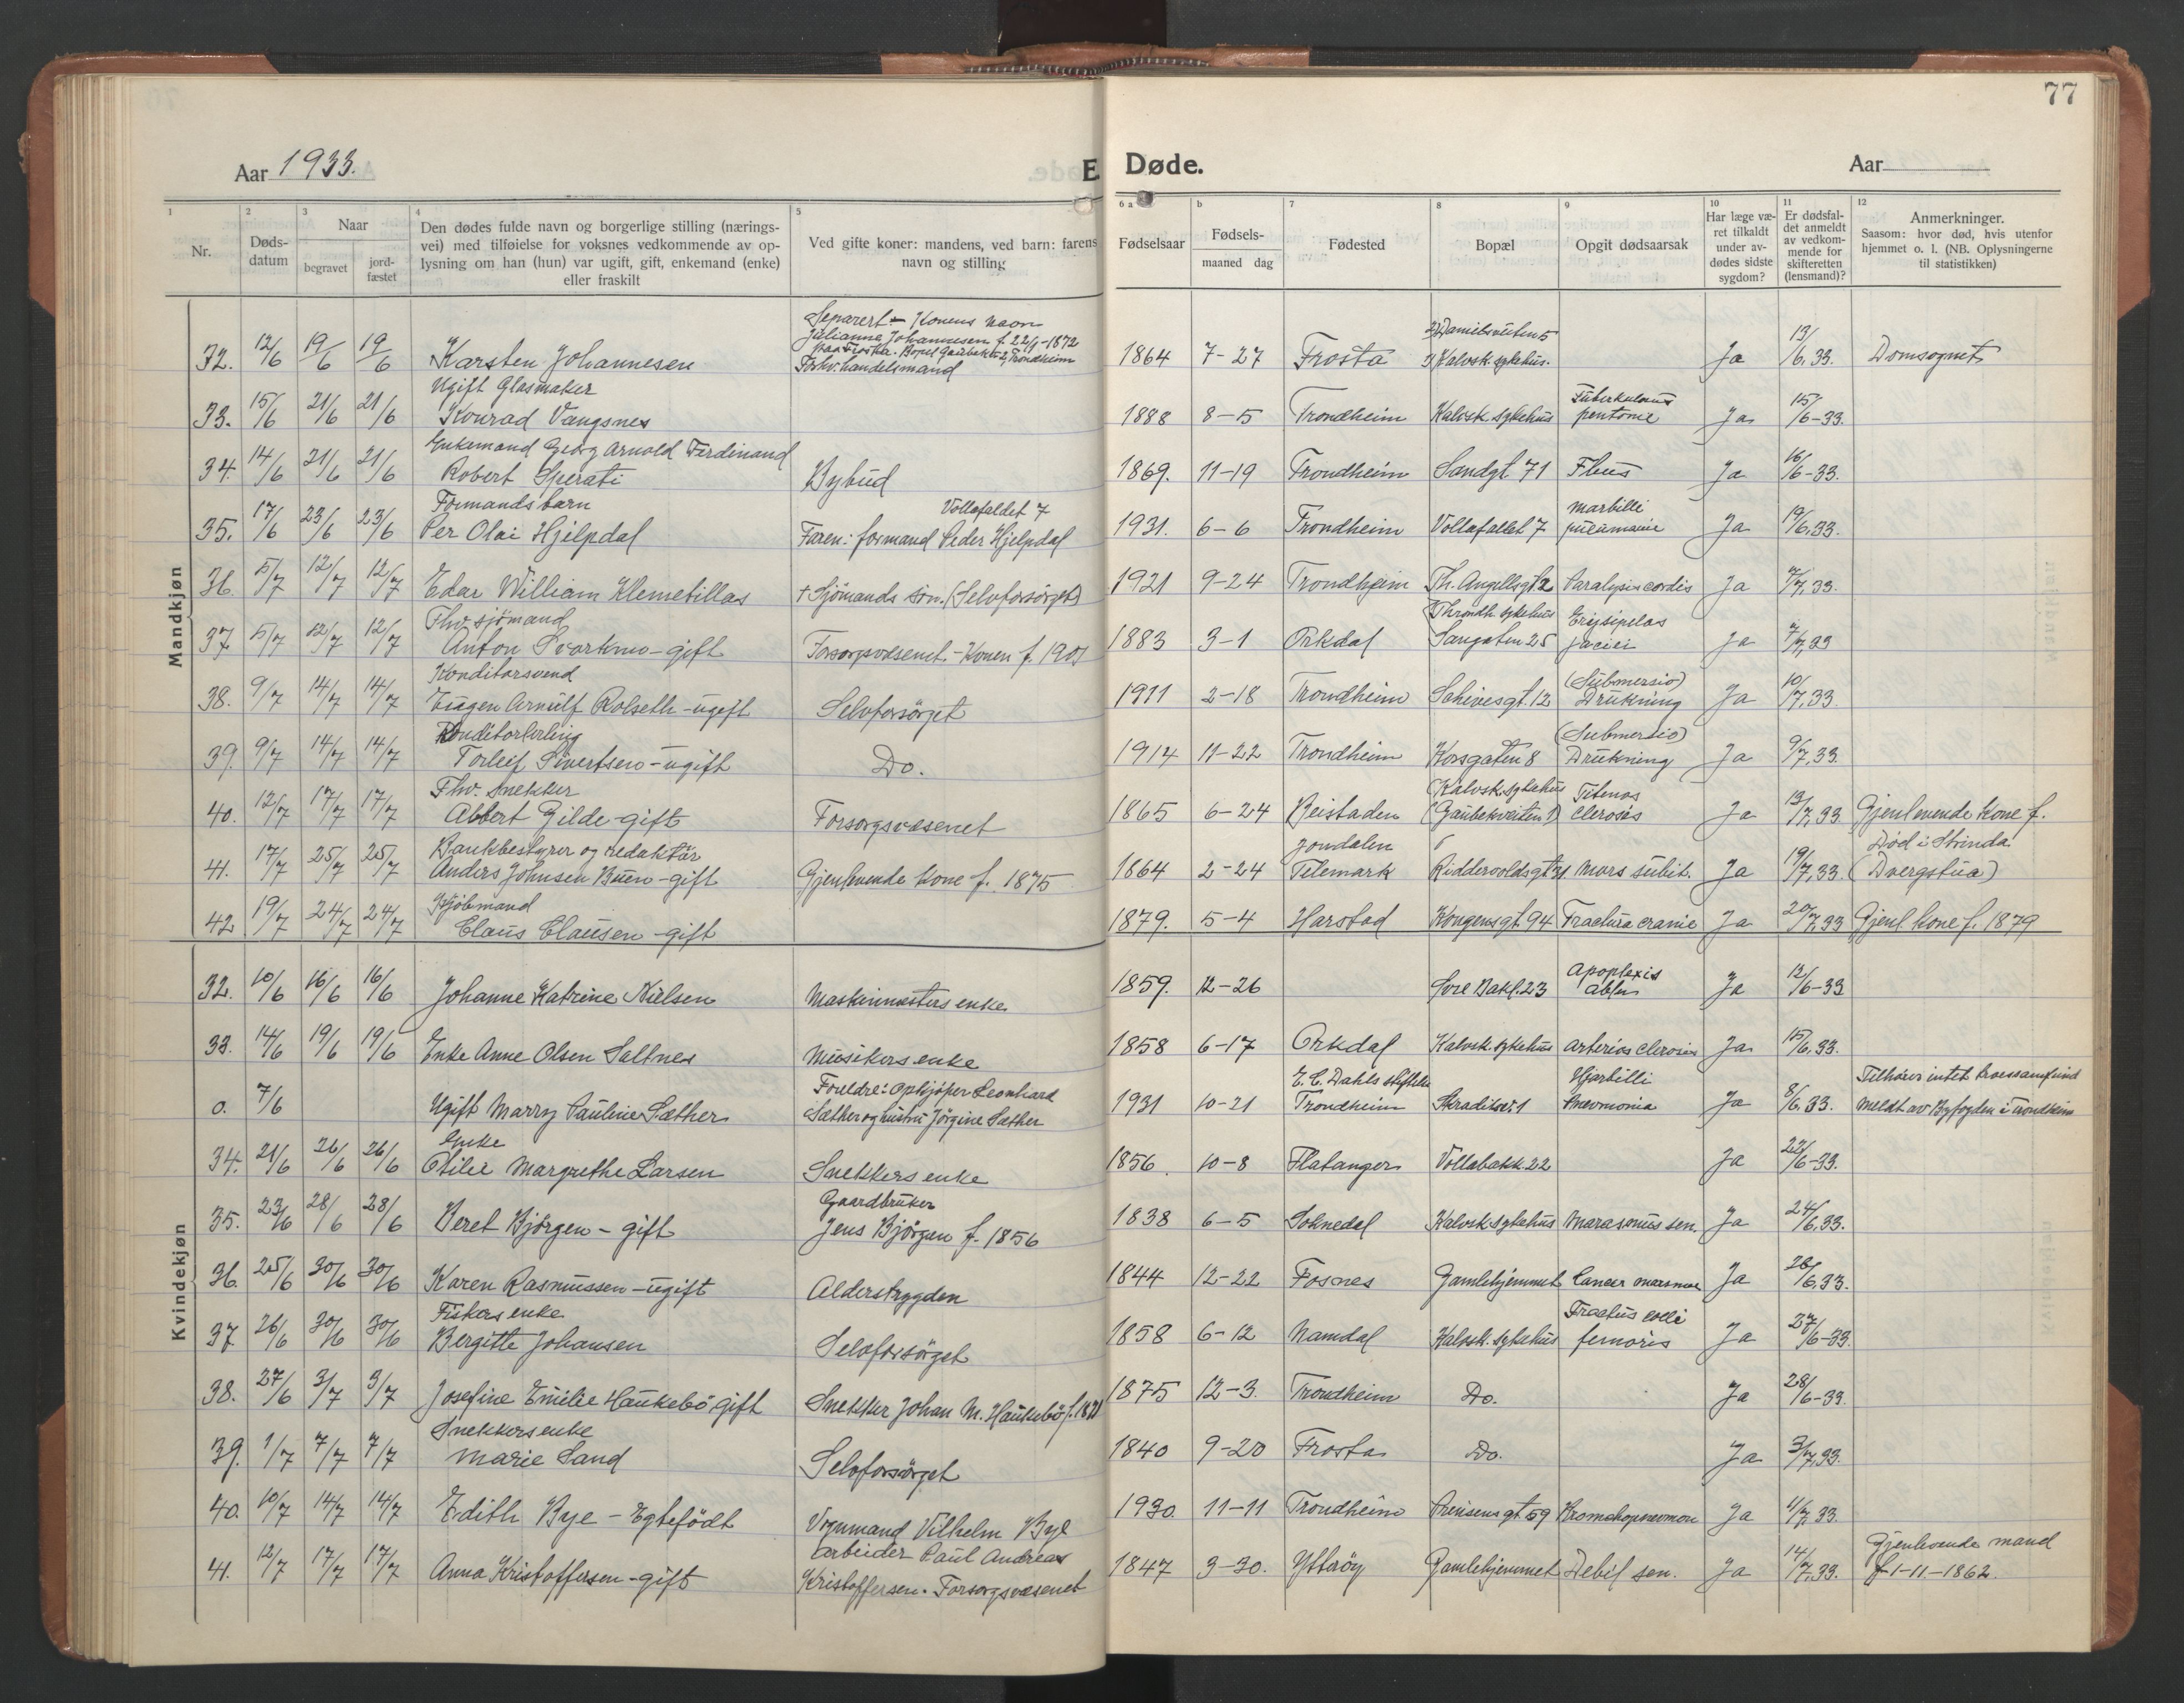 77
Aar 1933.
E
Døde.
Aar
1
2
3
4
5
6 a
b
7
8
9
10
11
12
Nr.
Døds-
datum
Naar
begravet
jord-
fæstet
Den dødes fulde navn og borgerlige stilling (nærings-
vei) med tilføielse for voksnes vedkommende av op-
lysning om han (hun) var ugift, gift, enkemand (enke)
eller fraskilt
Ved gifte koner: mandens, ved barn: farens
navn og stilling
Fødselsaar
Fødsels-
maaned dag
Fødested
Bopæl
Opgit dødsaarsak
Har læge væ-
ret tilkaldt
under av-
dødes sidste
sygdom?
Er dødsfal-
det anmeldt
av vedkom-
mende for
skifteretten
(lensmand)?
Anmerkninger.
Saasom: hvor død, hvis utenfor
hjemmet o. l. (NB. Oplysningerne
til statistikken)
Mandkjøn
Separert – Konens navn
Julianne Johannesen f. 22/9-1872
Trondheim
handelsmand
32. 12/6 19/6 19/6 Karsten Johannesen 1864 7-27 Frosta Kalvsk. sykehus. Ja 13/6.33. Domsognet
Ugift Glasmaker
33. 15/6 21/6 21/6 Konrad Vangsnes 1888 8-5 Trondheim Kalvsk. sykehus Ja 15/6-33.
Enkemand Georg Arnold Ferdinand
34. 14/6 21/6 21/6 Robert Sperati Bybud 1869. 11-19 Trondheim Sandgt 71 Ja 16/6-33.
Formands barn Vollafaldet 7 Marbilli
35. 17/6 23/6 23/6 Per Olai Hjelpdal Faren: formand Peder Hjelpdal 1931. 6-6 Trondheim Vollafallet 7 Ja 19/6.33.
36. 5/7 12/7 12/7 Edar William Klemetillas + Sjömands sön. (Selvforsörget) 1921 9-24 Trondhjeim Th. Angellsgt. 2 Paralysis cordis Ja 7/7.33.
Fhv. sjömand Throndh. sykehus Erysipelas
37. 5/7 12/7 12/7 Anton Svorkmo – gift Forsorgsvæsenet. – Konen f. 1901 1883 3-1 Orkdal 25 faciei Ja 7/7.33
Konditorsvend (Submersio)
38. 9/7 14/7 14/7 Eugen Arnulf Rolseth – ugift Selvforsörget 1911 2-18 Trondheim Schivesgt. 12 Drukning Ja 10/7.33.
Konditorlerling (Submersio)
39. 9/7 14/7 14/7 Torleif Sivertsen – ugift Do. 1914 11-22 Trondheim Korsgaten 8 Drukning Ja 9/7.33.
Fhv. Snekker (Kalvsk. sykehus
40. 12/7 17/7 17/7 Albert Gilde – gift Forsorgsvæsenet 1865 6-24 Beistaden (Gaubekveiten 1) Clerosis Ja 13/7.33 Gjenlevende kone f.
Bankbestyrer og redaktör Jondalen Död i Strinda
41. 17/7 25/7 25/7 Anders Johnsen Buen – gift Gjenlevende kone f. 1875 1864 2-24 Telemark Riddervoldsgt 31 Mors subit. Ja 19/7.33. (Dvergstua)
Kjöbmand
42 19/7 24/7 24/7 Claus Clausen – gift 1879. 5-4 Harstad Kongensgt. 94 Fractura cranie Ja 20/7.33 Gjenl. kone f. 1879
Kvindekjøn
Apoplexis
32. 10/6 16/6 16/6 Johanne Katrine Nielsen Maskinmesters enke 1859. 12-26 23 Ja 12/6-33
33. 14/6 19/6 19/6 Enke Anne Olsen Saltnes Musikers enke 1858 6-17 Orkdal Kalvsk. sykehus Arterios clerosis Ja 15/6.33.
Foreldre: Opkjöper Leonhard E. C. Dahls stiftelse Tilhörer intet troessamfund
0. 7/6 Ugift Marry Pauline Sæther Sæther og hustru Jörgine Sæther 1931 10-21 Trondheim Pnevmonia Ja 8/6.33. Meldt av Byfogden i Trondheim
Enke
34. 21/6 26/6 26/6 Otilie Margrethe Larsen Snekkers enke 1856. 10-8 Flatanger Vollabakk. 22 Ja 22/6-33.
Gaardbruker
35. 23/6 28/6 28/6 Beret Bjørgen – gift Jens Bjørgen f. 1856 1838 6-5 Soknedal Kalvsk. sykehus Marasmus sen. Ja 24/6.33.
36. 25/6 30/6 30/6 Karen Rasmussen – ugift Alderstrygden 1844 12-22 Fosnes Gamlehjemmet Cancer Ja 26/6.33.
Fiskers enke
37. 26/6 30/6 30/6 Bergitte Johansen Selvforsörget 1858 6-12 Namdal Kalvsk. sykehus femoris Ja 27/6-33.
38. 27/6 3/7 3/7 Josefine Emilie Haukebö gift Snekker Johan M. Haukebö 1875 12-3. Trondheim Do. Ja 28/6-33.
Snekkers enke
39. 1/7 7/7 7/7 Marie Sand Selvforsörget 1840 9-20 Frosta Do. Ja 3/7.33.
40. 10/7 14/7 14/7 Edith Bye – Egtefödt Vognmand Vilhelm Bye 1930. 11-11 Trondheim Prinsensgt. 59 Ja 11/7.33.
Arbeider Paul Andreas Gjenlevende mand
41. 12/7 17/7 17/7 Anna Kristoffersen – gift Kristoffersen. Forsorgsvæsenet 1847 3-30. Ytteröy Gamlehjemmet Debil sen. Ja 14/7.33. f. 1-11-1862.